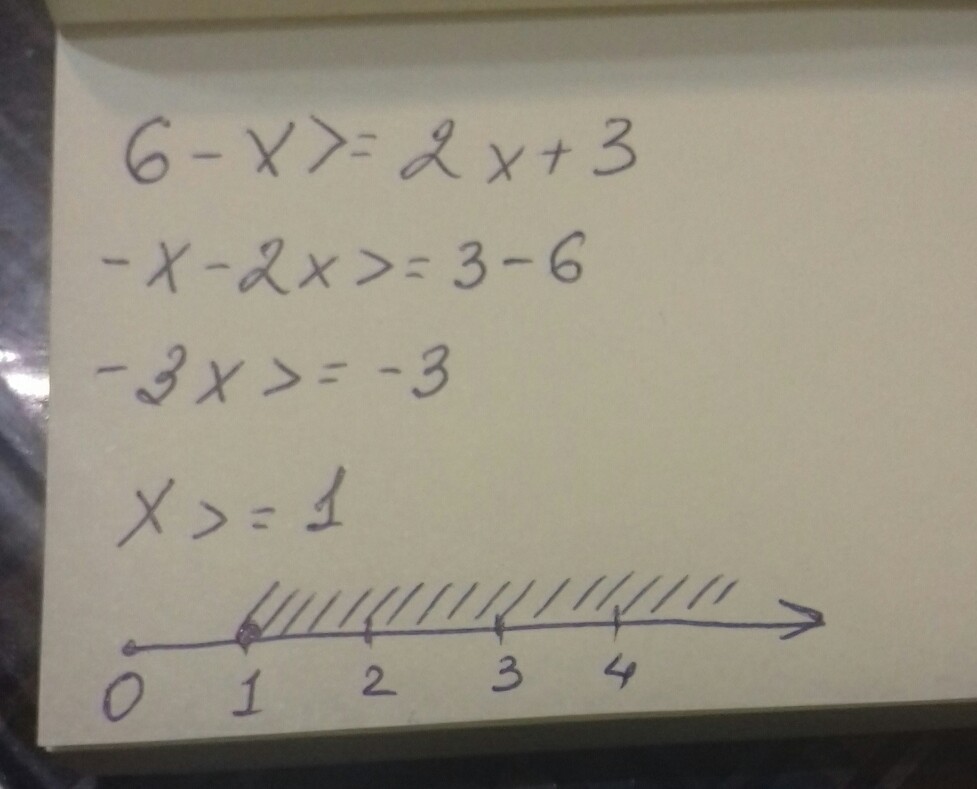 6-x>=2x+3
-x-2x>=3-6
-3x>=-3
x>=1
0 1 2 3 4